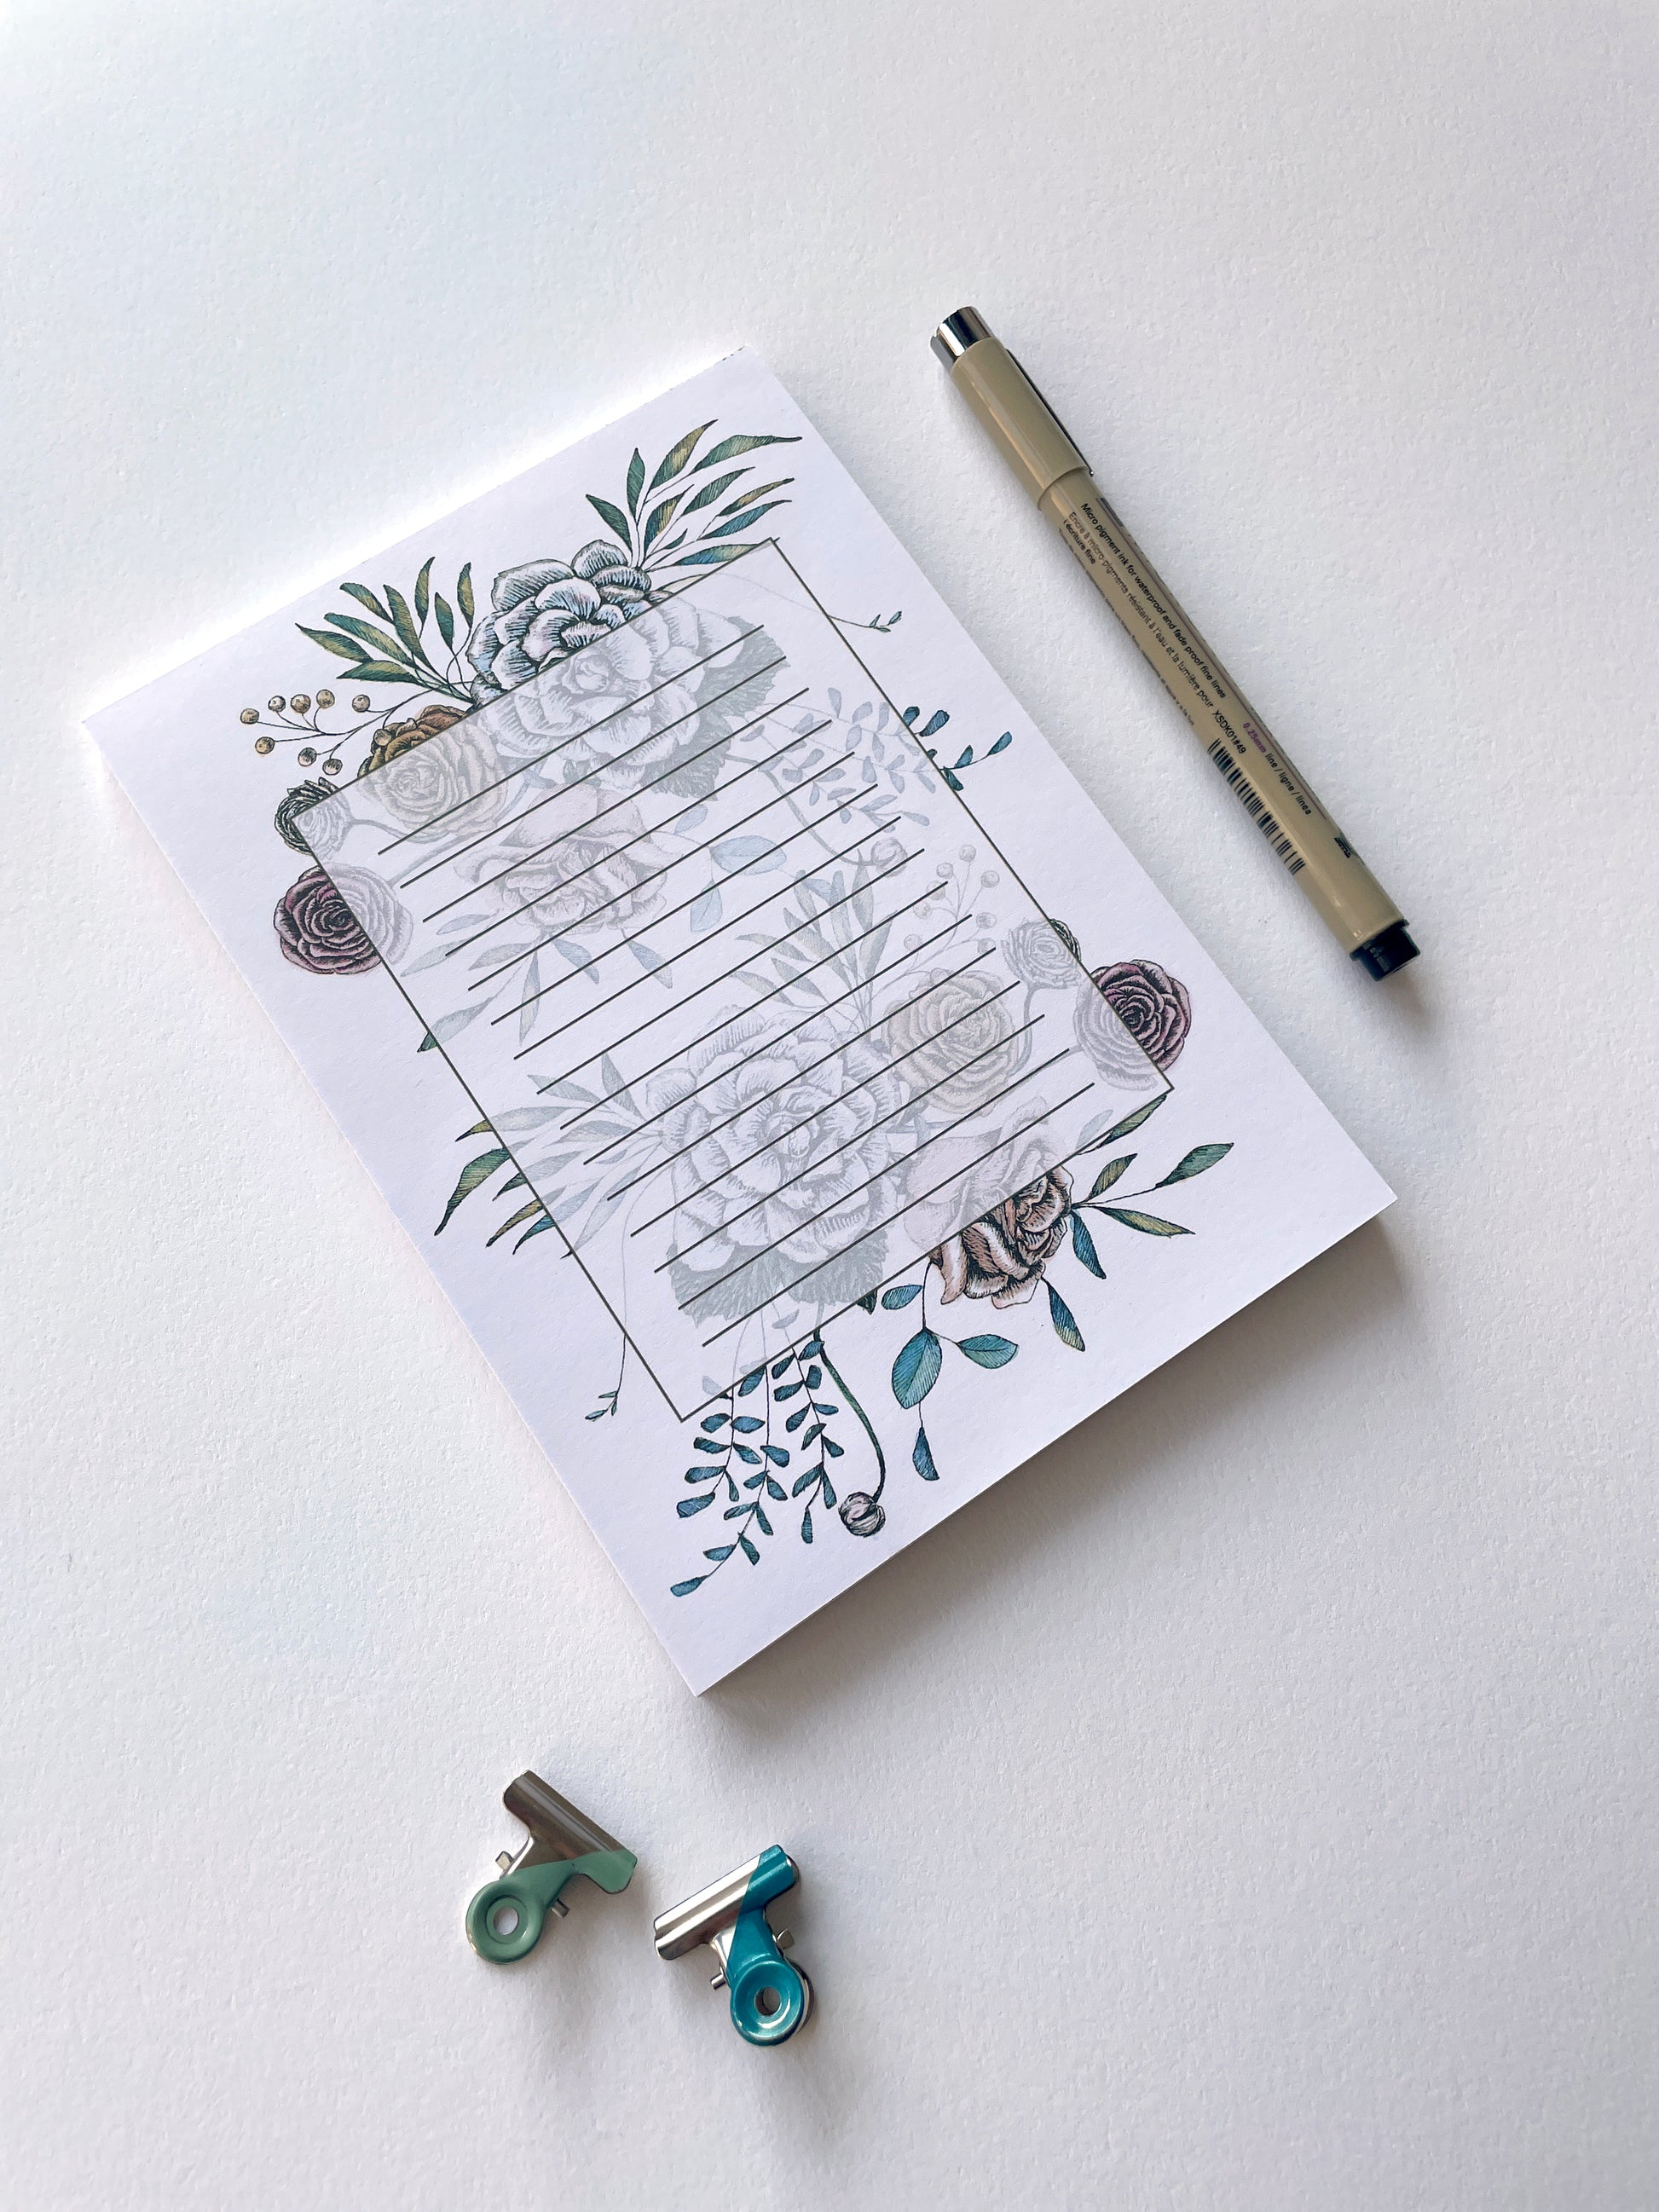 Micro pigment ink for waterproof and fade proof fine lines
Encre à micro-pigments résistant à l'eau et la lumière pour
l'écriture fine
XSDK01#49
0.25mm line / ligne / línea